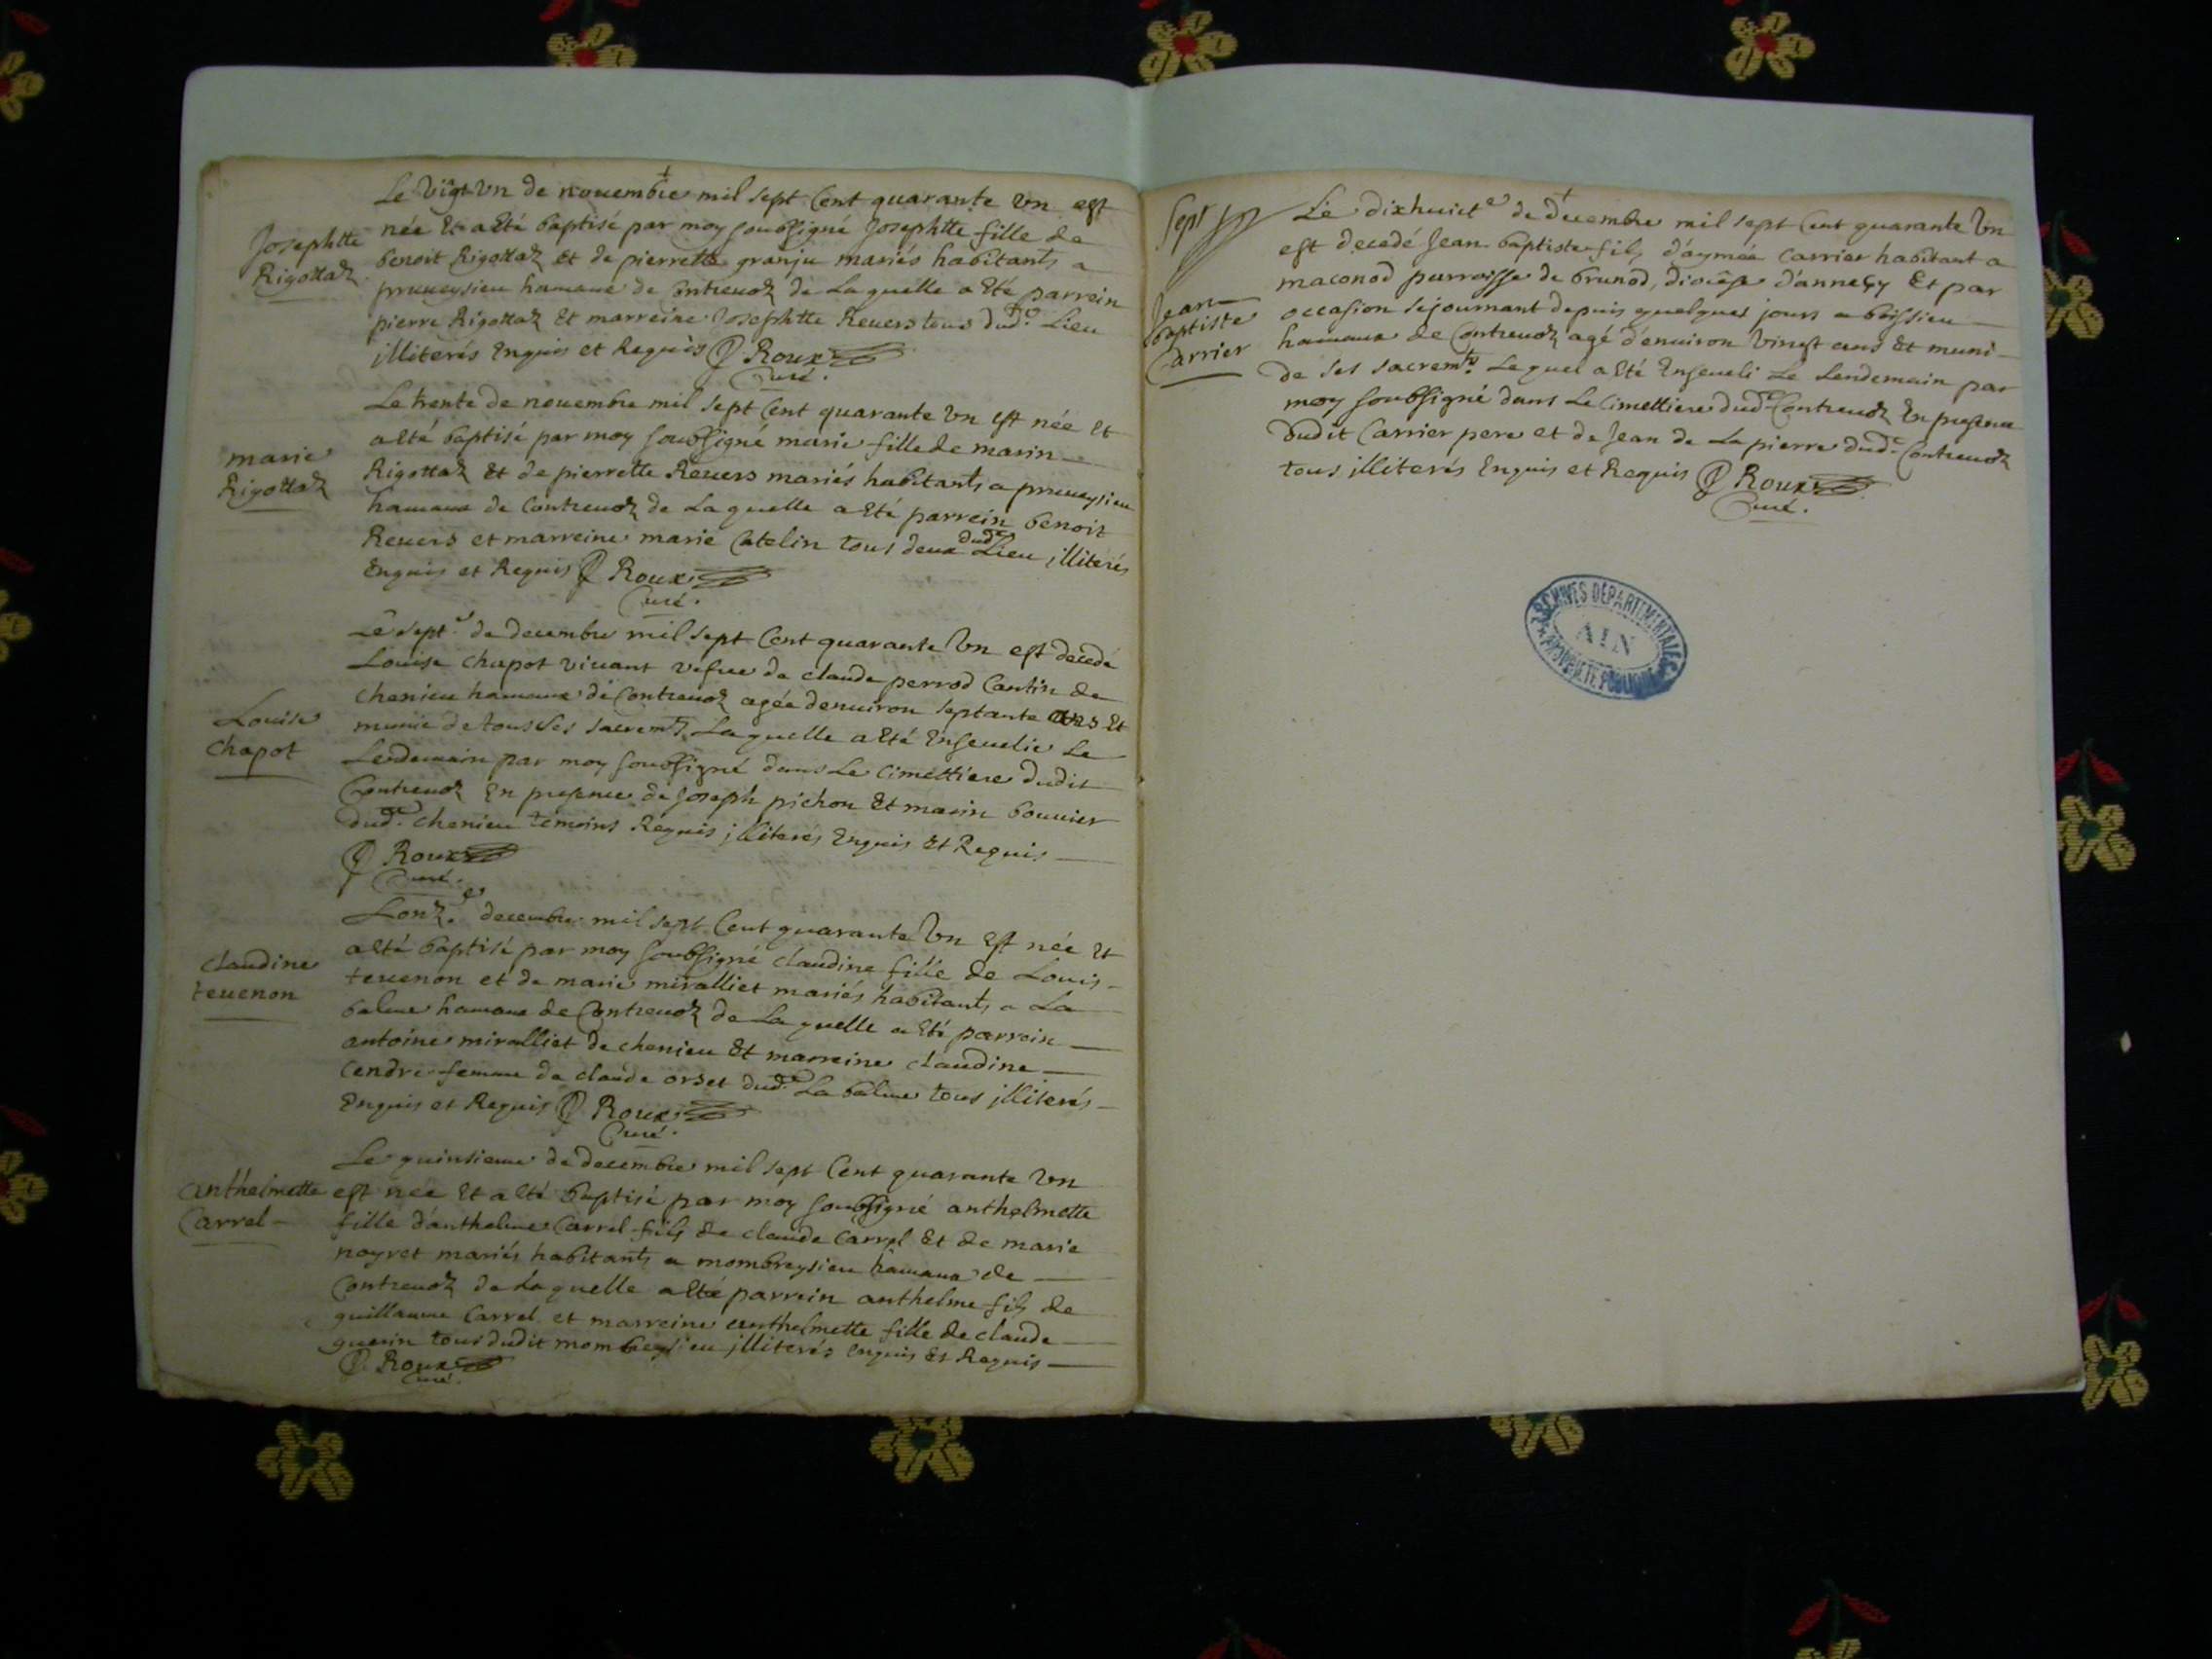 Josephtte
Rigottaz
Le vigt un de novembre mil sept Cent quarante Un est
née Et a Eté baptisé par moy soubsigné Josephtte fille de
benoit Rigottaz Et de pierrette granju mariés habitants a
pruveysieu hamaux de Contrevoz de La quelle a Eté parrein
pierre Rigottaz Et marreine Josephtte Revers tous dud.t Lieu
jlliterés Enquis et Requis Roux
Curé.
marie
Rigottaz
Le trente de novembre mil sept Cent quarante Un est née Et
a Eté baptisé par moy soubsigné marie fille de marin
Rigottaz Et de pierrette Revers mariés habitants a pruveysieu
hamaux de Contrevoz de La quelle a Eté parrein benoit
Revers et marreine marie Catelin tous deux dud.t Lieu jlliterés
Enquis et Requis Roux
Curé.
Louise
chapot
Le sept.e de decembre mil sept Cent quarante Un est decedé
Louise chapot vivant vefve de claude perrod Cantin de
chenieu hamaux de Contrevoz agée denviron septante ans Et
munie de tous ses sacremts La quelle a Eté Ensevelie Le
Lendemain par moy soubsigné dans Le cimettiere dudit
Contrevoz En presence de Joseph pichon Et marin bouvier
dud.t chenieu temoins Requis jlliterés Enquis Et Requis
Roux
Curé.
claudine
tevenon
Lonz.e decembre mil sept Cent quarante Un Est née Et
a Eté baptisé par moy soubsigné claudine fille de Louis
tevenon et de marie miralliet mariés habitants a La
balme hamaux de Contrevoz de La quelle a Eté parrein
antoine miralliet de chenieu Et marreine claudine
Cendre femme de claude orset dud.t La balme tous jlliterés
Enquis et Requis Roux
Curé.
anthelmette
Carrel
Le quinsieme de decembre mil sept Cent quarante Un
est née Et a Eté baptisé par moy soubsigné anthelmette
fille d'anthelme Carrel fils de claude Carrel Et de marie
noyret mariés habitants a mombreysieu hamaux de
Contrevoz de La quelle a Eté parrein anthelme fils de
guillaume Carrel et marreine anthelmette fille de claude
guerin tous dudit mombreysieu jlliterés Enquis Et Requis
Roux
Curé.
Sept
Jean
baptiste
Carrier
Le dixhuict.e de decembre mil sept Cent quarante Un
est decedé Jean baptiste fils d'aymée Carrier habitant a
maconod parroisse de brunod, diocése d'anneçy Et par
occasion sejournant depuis quelques jours a boissieu
hamaux de Contrevoz agé d'environ vingt ans Et muni
de ses sacremts. Le quel a Eté Enseveli Le Lendemain par
moy soubsigné dans Le cimettiere dud.t Contrevoz En presence
dudit Carrier pere et de Jean de La pierre dud.t Contrevoz
tous jlliterés Enquis et Requis Roux
Curé.
ARCHIVES DEPARTEMENTALES
AIN
PROPRIETE PUBLIQUE